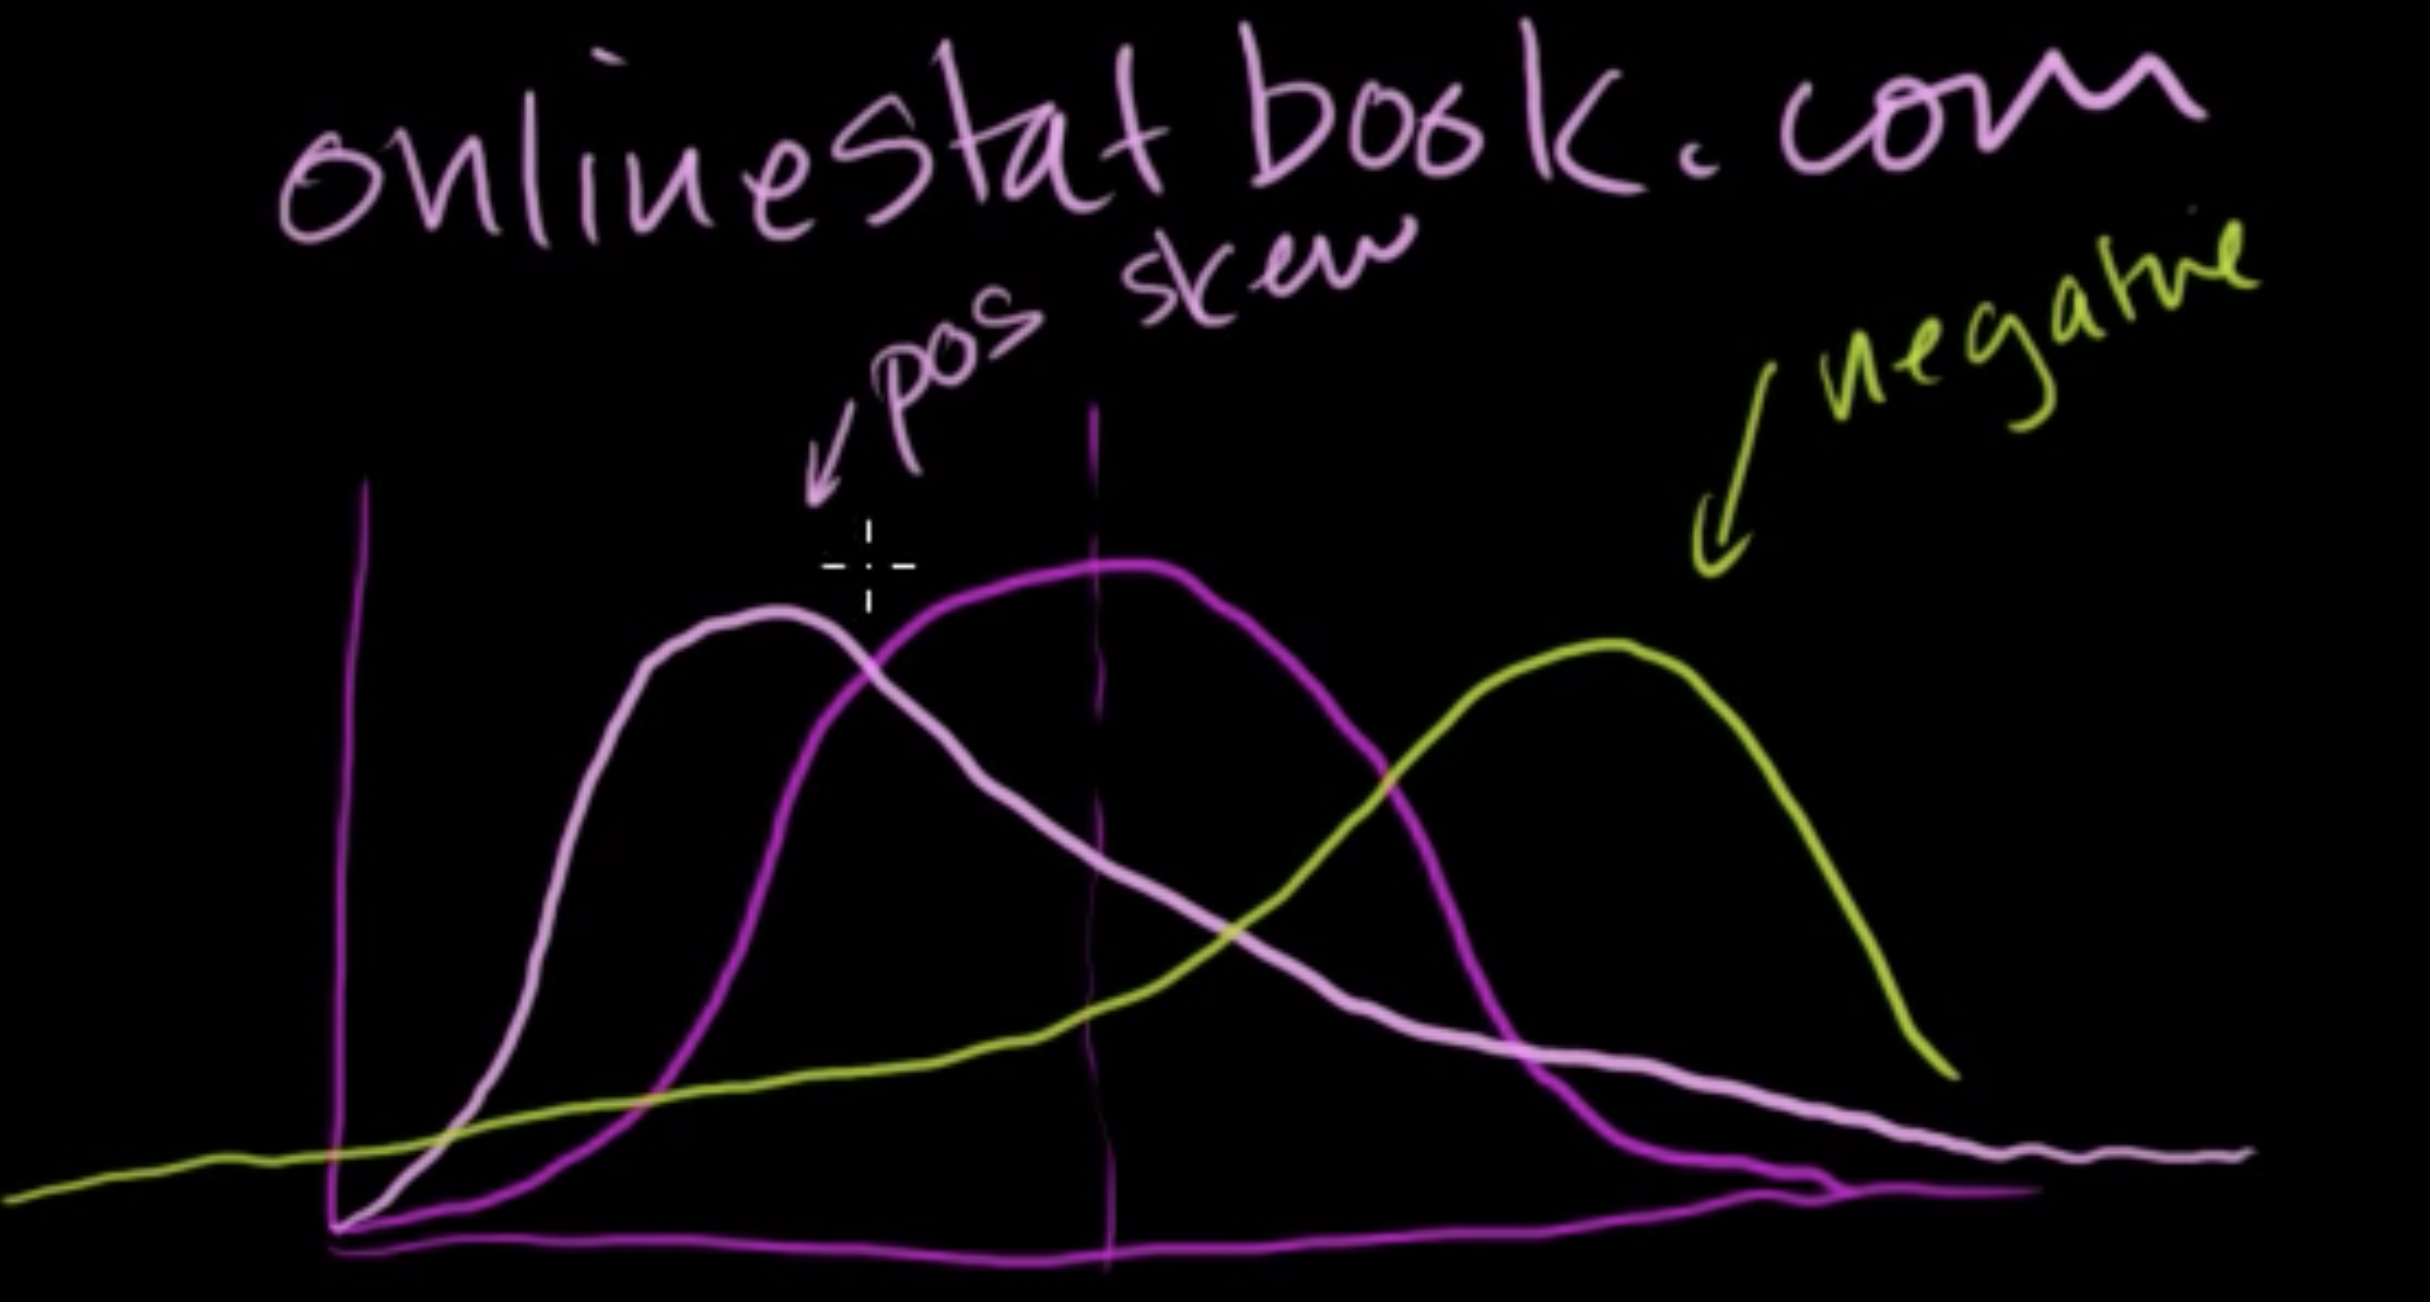 onlinestatbook.com
pos skew
negative